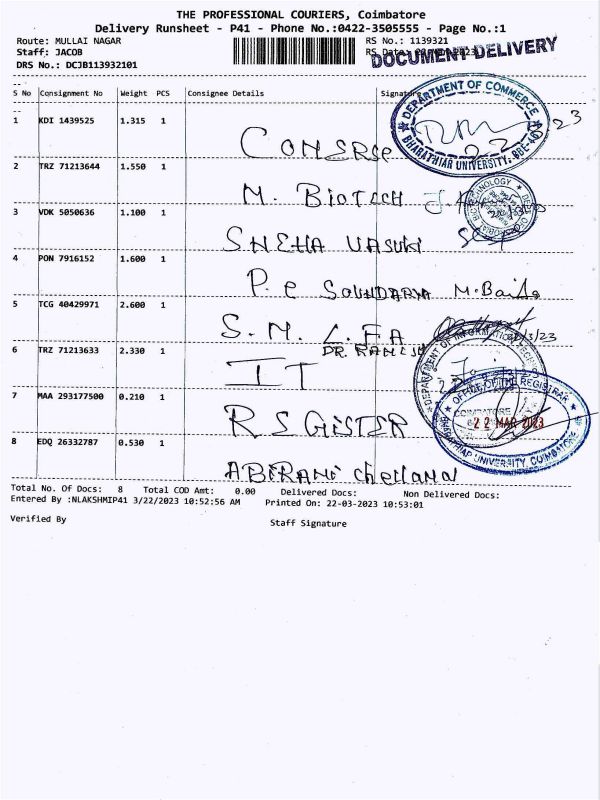 THE PROFESSIONAL COURIERS, Coimbatore
Delivery Runsheet - P41 - Phone No.:0422-3505555 - Page No.:1
Route: MULLAI NAGAR RS No.: 1139321
Staff: JACOB RS Date:
DOCUMENT DELIVERY
DRS No.: DCJB113932101
S No Consignment No Weight PCS Consignee Details Signature
DEPARTMENT OF COMMERCE
BHARATHIAR UNIVERSITY, CBE-46
1 KDI 1439525 1.315 1 COMERSE
2 TRZ 71213644 1.550 1 M. BIOTECH
3 VDK 5050636 1.100 1 SNEHA VASUKI
4 PON 7916152 1.600 1 P. C SOUNDARYA M.
5 TCG 40429971 2.600 1 S. M. L. F A
DR. RAMESH
6 TRZ 71213633 2.330 1 IT
DEPARTMENT OF INFORMATION
7 MAA 293177500 0.210 1 REGISTER
OFFICE OF THE REGISTRAR
22 MAR 2023
BHARATHIAR UNIVERSITY, COIMBATORE
8 EDQ 26332787 0.530 1 ABIRAMI Chellama
Total No. Of Docs: 8 Total COD Amt: 0.00 Delivered Docs: Non Delivered Docs:
Entered By :NLAKSHMIP41 3/22/2023 10:52:56 AM Printed On: 22-03-2023 10:53:01
Verified By Staff Signature